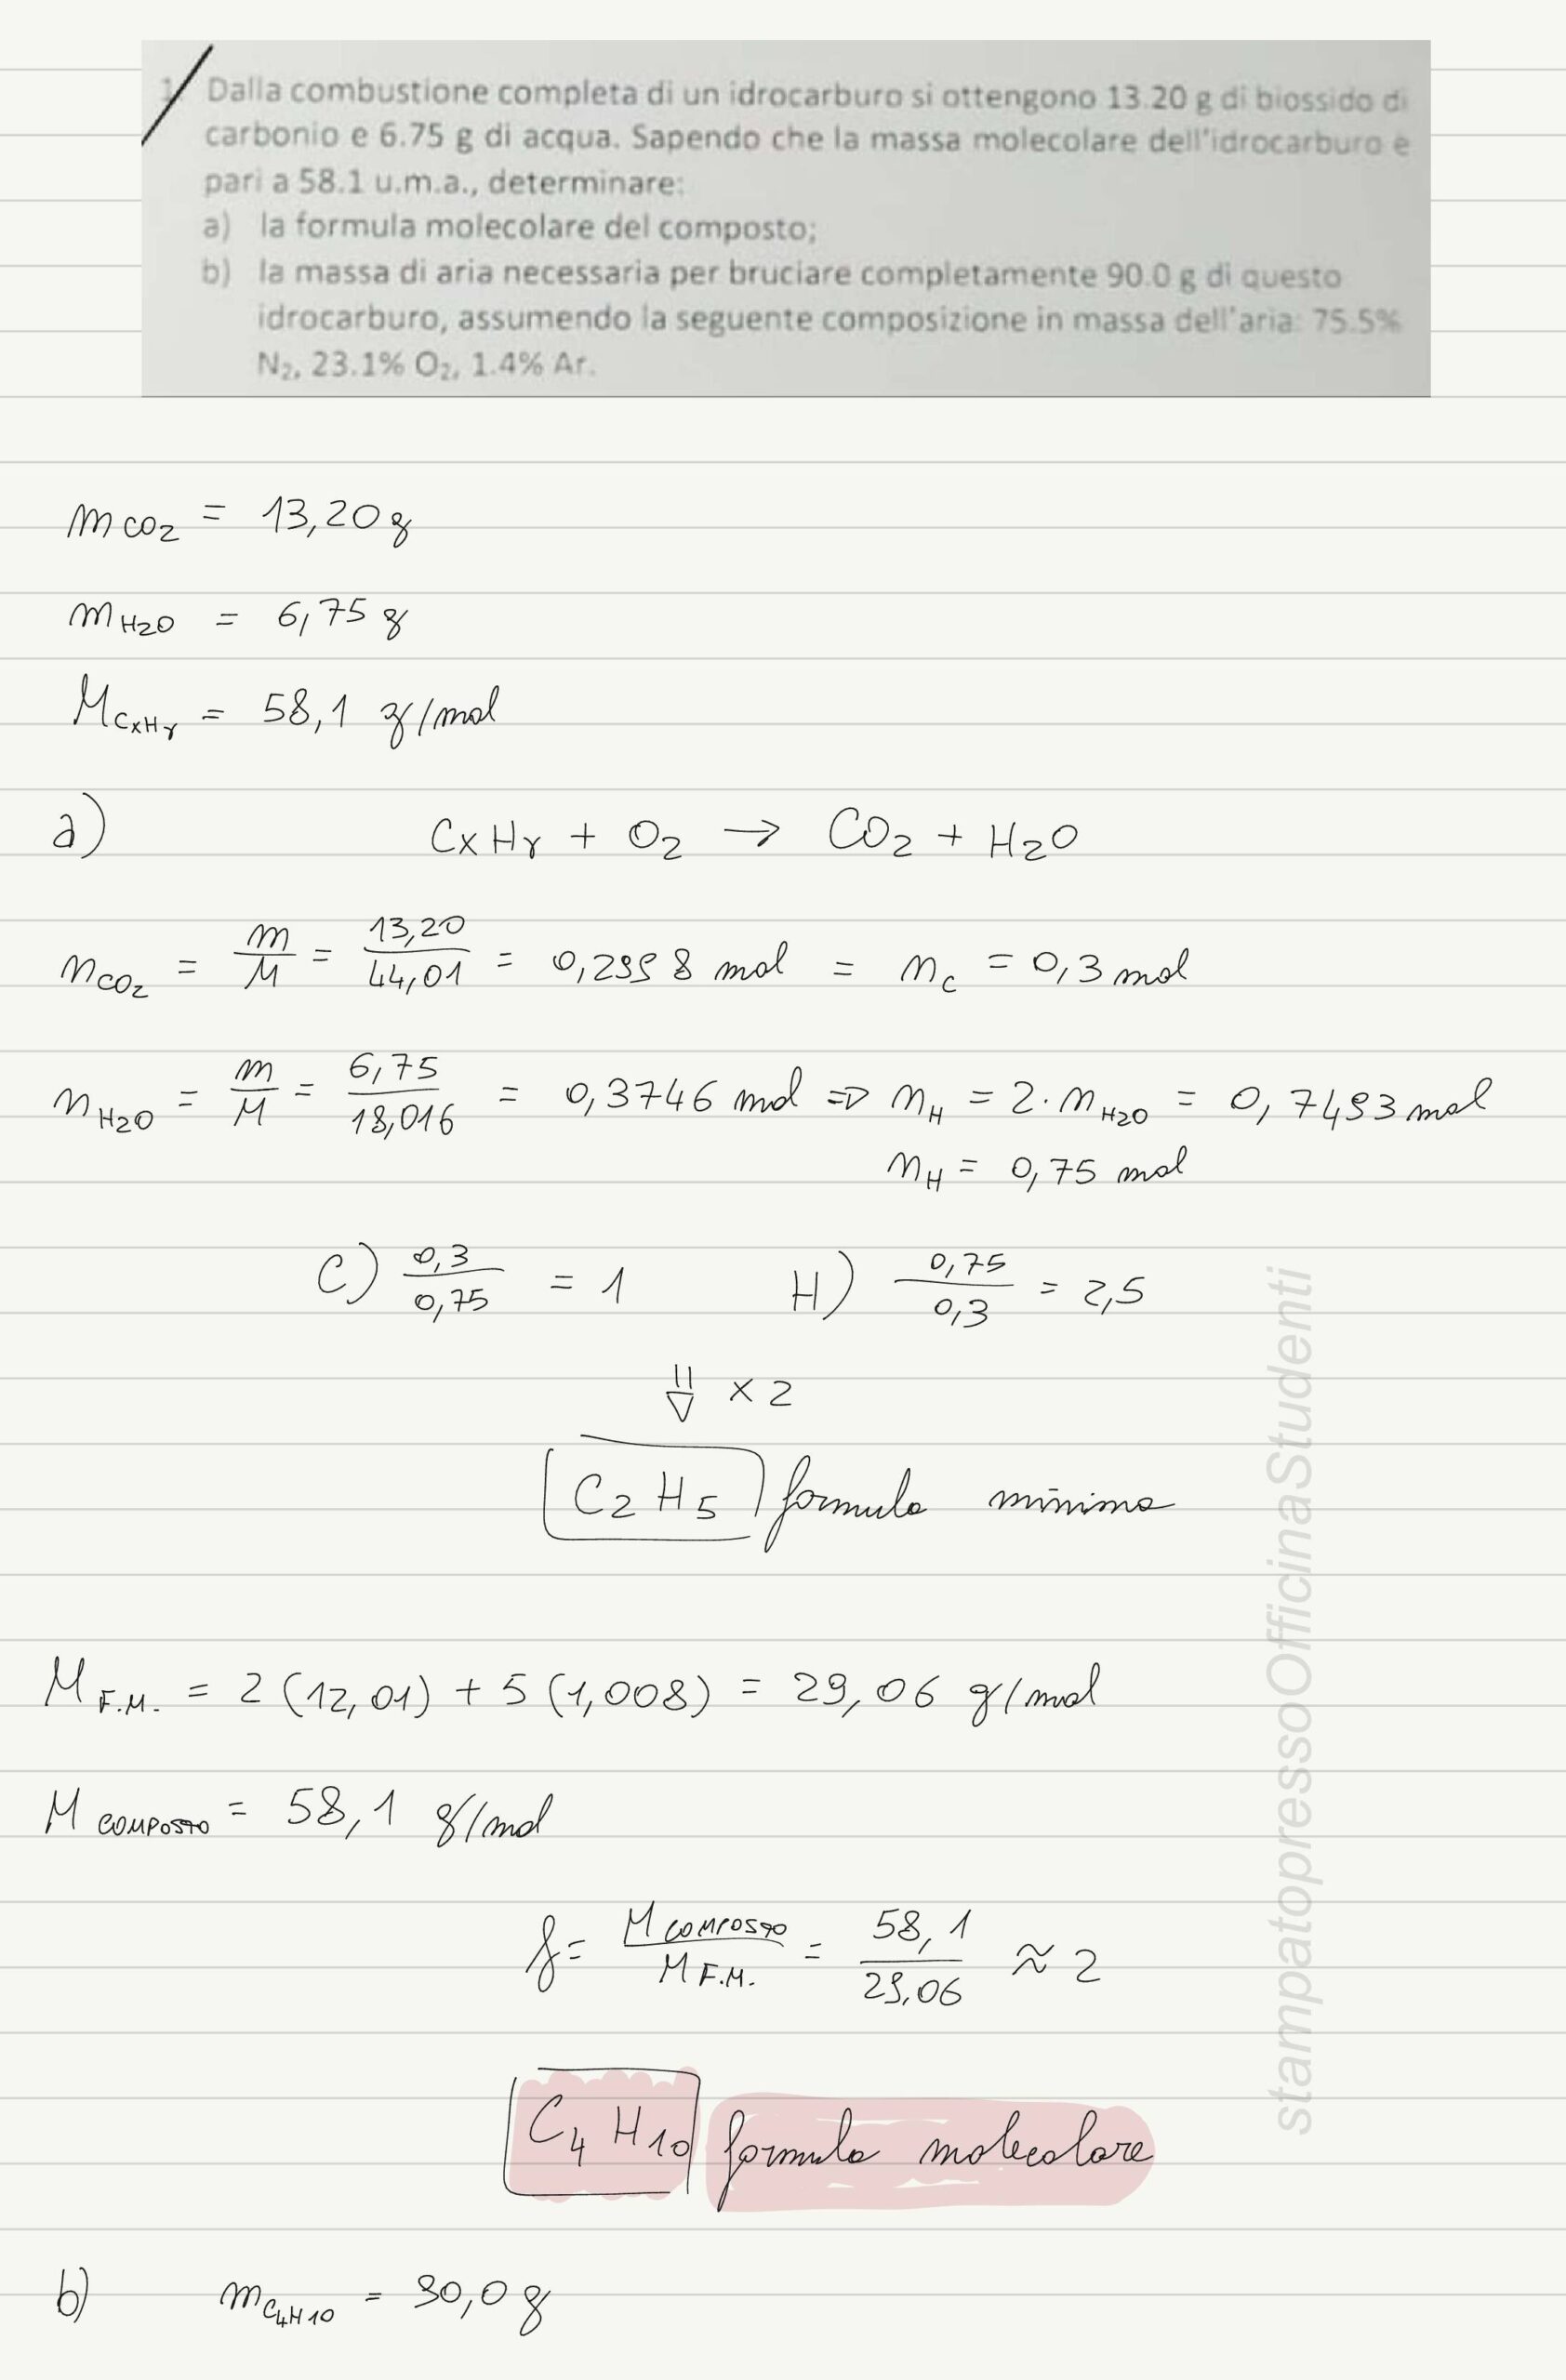 1. Dalla combustione completa di un idrocarburo si ottengono 13.20 g di biossido di
carbonio e 6.75 g di acqua. Sapendo che la massa molecolare dell'idrocarburo è
pari a 58.1 u.m.a., determinare:
a) la formula molecolare del composto;
b) la massa di aria necessaria per bruciare completamente 90.0 g di questo
idrocarburo, assumendo la seguente composizione in massa dell'aria: 75.5%
N₂, 23.1% O₂, 1.4% Ar.
m CO₂ = 13,20 g
m H₂O = 6,75 g
M CxHy = 58,1 g/mol
a) CxHy + O₂ → CO₂ + H₂O
n CO₂ = m/M = 13,20/44,01 = 0,2998 mol = n C = 0,3 mol
n H₂O = m/M = 6,75/18,016 = 0,3746 mol ⇒ n H = 2 · n H₂O = 0,7493 mol
n H = 0,75 mol
C) 0,3/0,75 = 1 H) 0,75/0,3 = 2,5
⇓ × 2
C₂H₅ formula minima
M F.M. = 2 (12,01) + 5 (1,008) = 29,06 g/mol
M COMPOSTO = 58,1 g/mol
f = M COMPOSTO/M F.M. = 58,1/29,06 ≈ 2
C₄H₁₀ formula molecolare
b) m C₄H₁₀ = 90,0 g
stampatopressoOfficinaStudenti